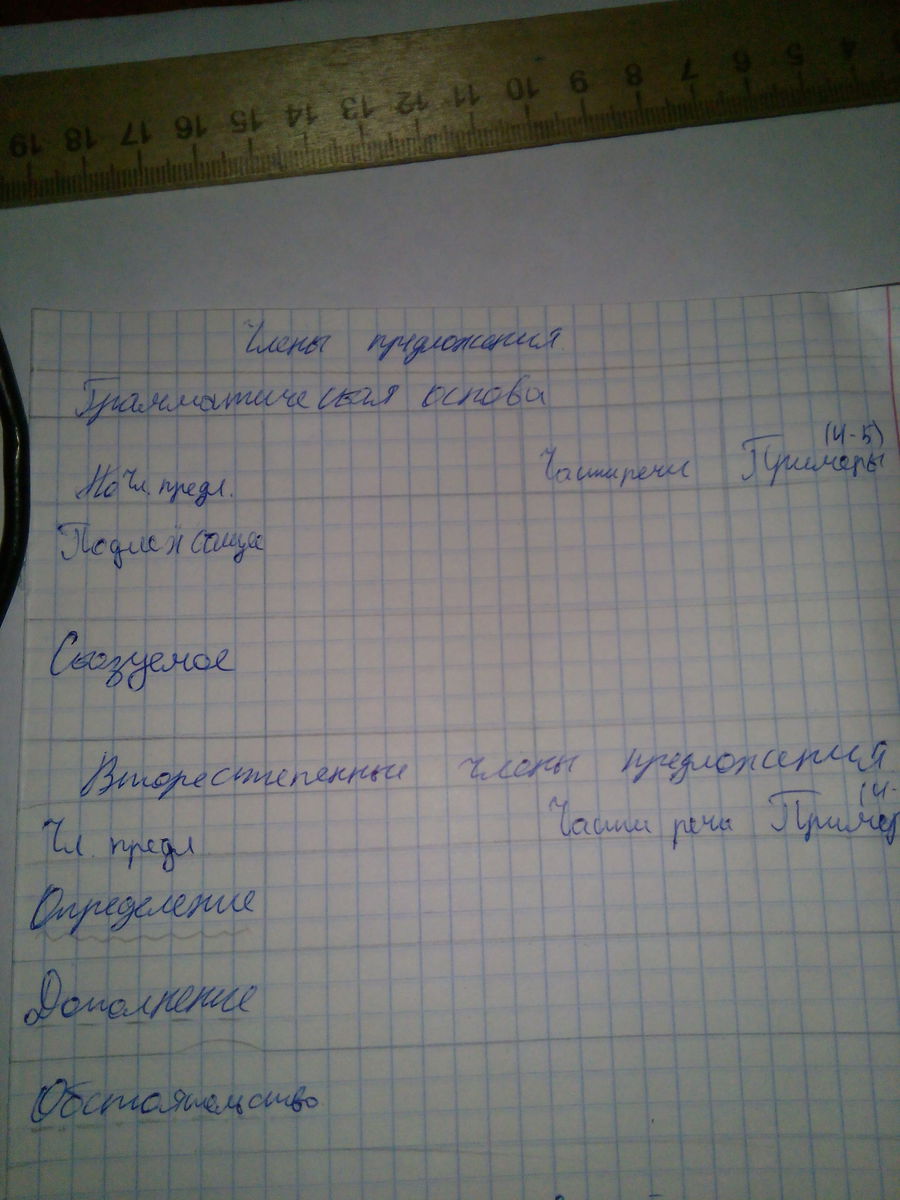 19 18 17 16 15 14 13 12 11 10 9 8 7 6 5 4
Члены предложения
Грамматическая основа
Чл. предл. Части речи Примеры (4-5)
Подлежаще
Сказуемое
Вторестепенные члены предложения
Чл. предл Части речи Пример (4-
Определение
Дополнение
Обстоятельство